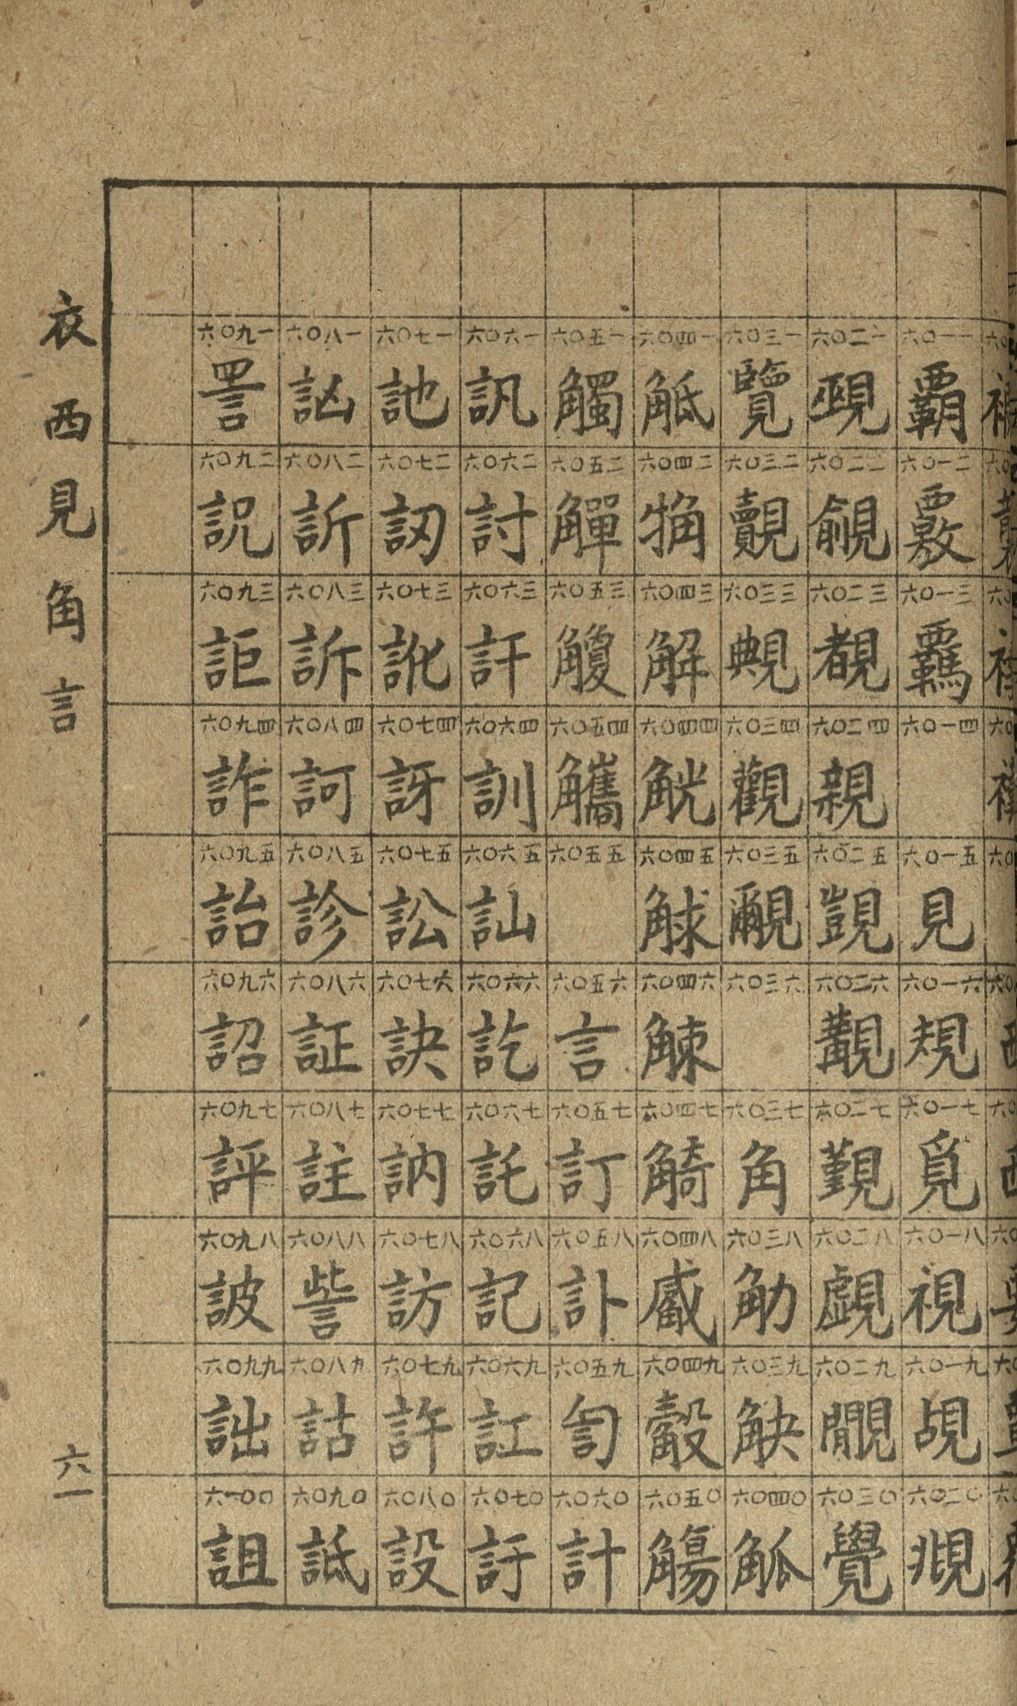 衣 西 見 角 言
六一
六〇一一 霸 六〇一二 覈 六〇一三 覊 六〇一四 六〇一五 見 六〇一六 規 六〇一七 覓 六〇一八 視 六〇一九 覘 六〇二〇 覜
六〇二一 覡 六〇二二 覦 六〇二三 覩 六〇二四 親 六〇二五 覬 六〇二六 覯 六〇二七 覲 六〇二八 覷 六〇二九 覸 六〇三〇 覺
六〇三一 覽 六〇三二 覿 六〇三三 覥 六〇三四 觀 六〇三五 覼 六〇三六 六〇三七 角 六〇三八 觔 六〇三九 觖 六〇四〇 觚
六〇四一 觝 六〇四二 觕 六〇四三 解 六〇四四 觥 六〇四五 觩 六〇四六 觫 六〇四七 觭 六〇四八 觱 六〇四九 觳 六〇五〇 觴
六〇五一 觸 六〇五二 觶 六〇五三 觼 六〇五四 觿 六〇五五 六〇五六 言 六〇五七 訂 六〇五八 訃 六〇五九 訇 六〇六〇 計
六〇六一 訊 六〇六二 討 六〇六三 訐 六〇六四 訓 六〇六五 訕 六〇六六 訖 六〇六七 託 六〇六八 記 六〇六九 訌 六〇七〇 訏
六〇七一 訑 六〇七二 訒 六〇七三 訛 六〇七四 訝 六〇七五 訟 六〇七六 訣 六〇七七 訥 六〇七八 訪 六〇七九 許 六〇八〇 設
六〇八一 訩 六〇八二 訢 六〇八三 訴 六〇八四 訶 六〇八五 診 六〇八六 証 六〇八七 註 六〇八八 訾 六〇八九 詁 六〇九〇 詆
六〇九一 詈 六〇九二 詋 六〇九三 詎 六〇九四 詐 六〇九五 詒 六〇九六 詔 六〇九七 評 六〇九八 詖 六〇九九 詘 六一〇〇 詛